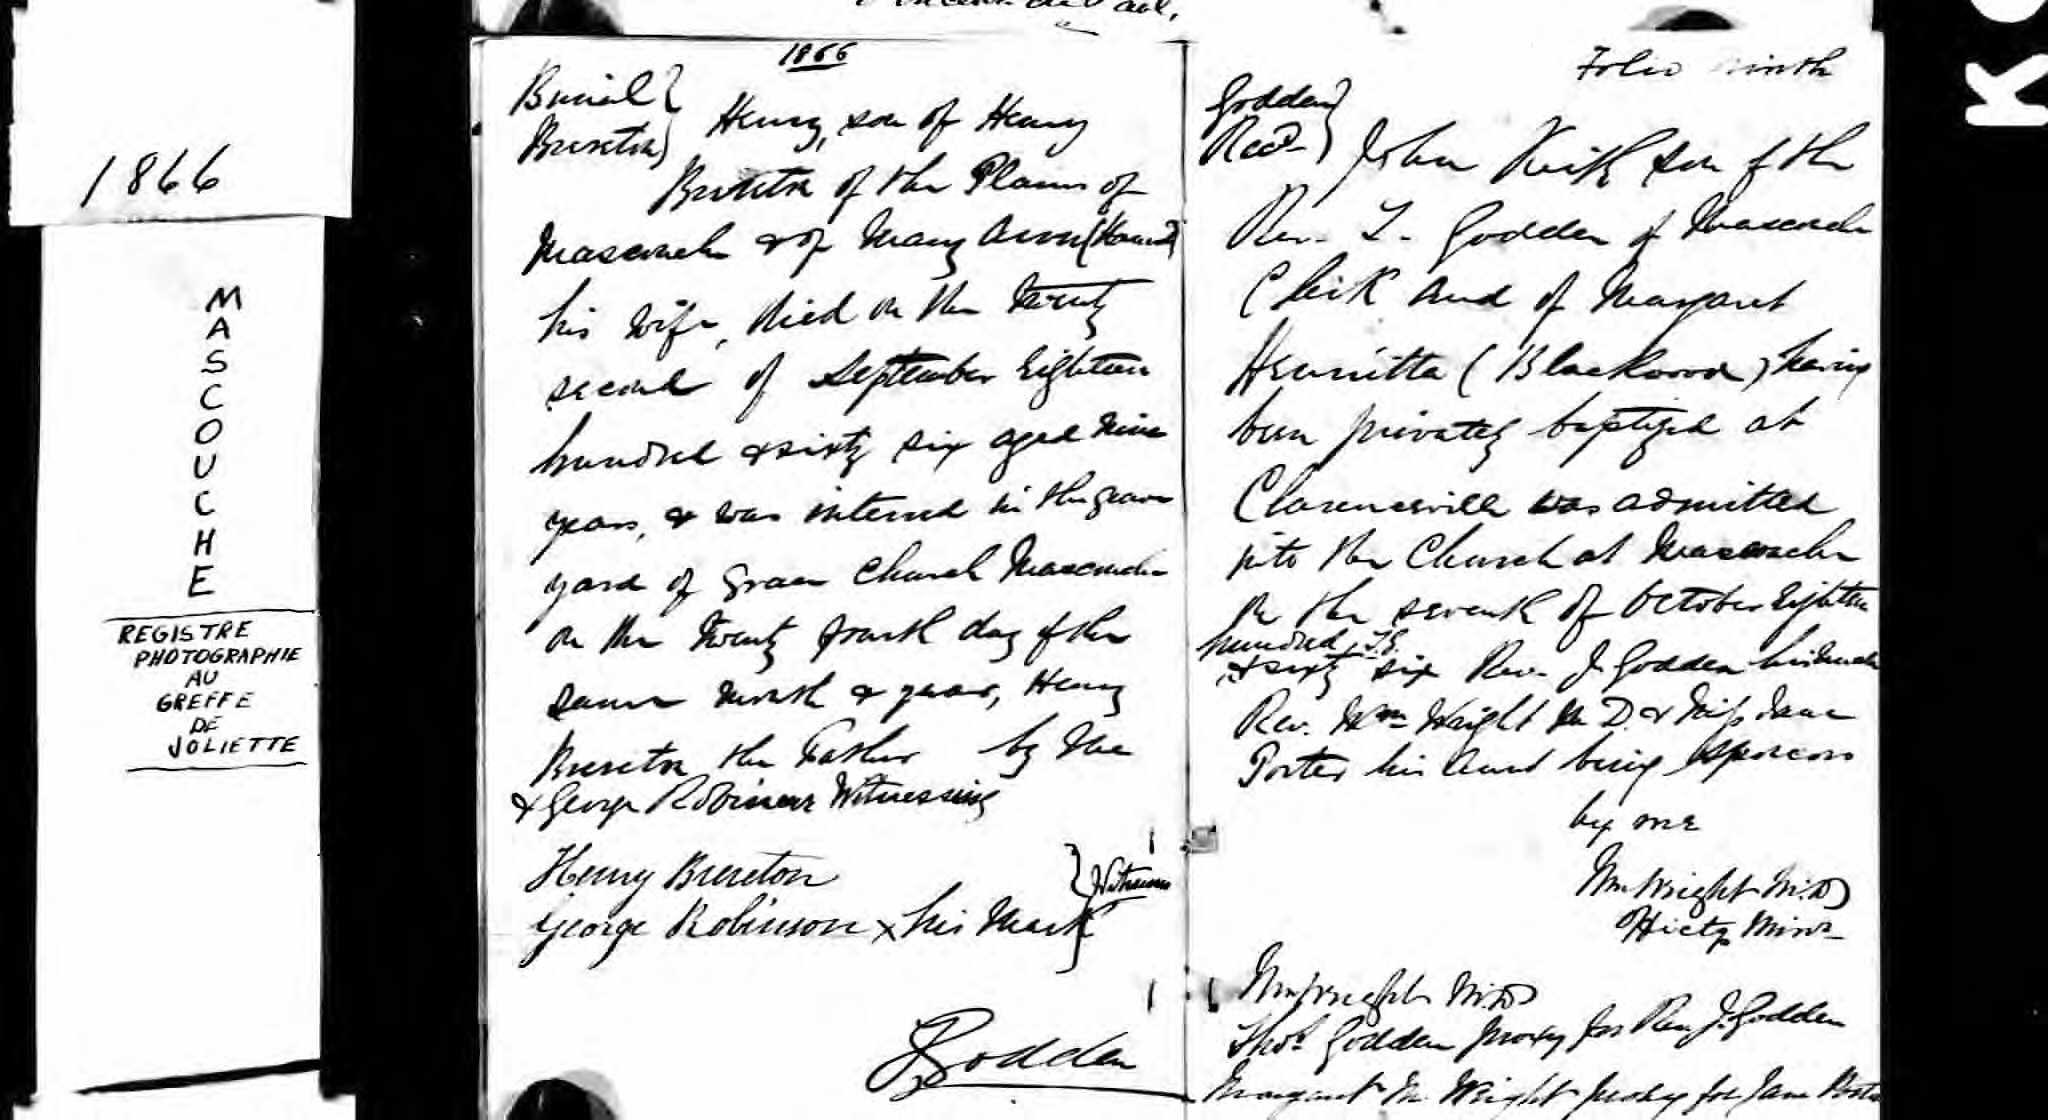 1866
M
A
S
C
O
U
C
H
E
REGISTRE
PHOTOGRAPHIE
AU
GREFFE
DE
JOLIETTE
1866
Burial
Brereton
Henry, son of Henry
Brereton of the Plains of
Mascouche & of Mary Ann
his wife, died on the twenty
second of September Eighteen
hundred & sixty six aged nine
years, & was interred in the grave
yard of Grace Church Mascouche
on the twenty fourth day of the
same month & year, Henry
Brereton the Father by me
& George Robinson Witnessing
Henry Brereton
George Robinson x his mark
Witnesses
Godden
Folio ninth
Godden
Recd
John Keith son of the
Rev. T. Godden of Mascouche
Clerk and of Margaret
Henrietta (Blackwood) having
been privately baptized at
Clarenceville was admitted
into the Church at Mascouche
on the seventh of October Eighteen
hundred T.G.
& sixty six Rev. J. Godden his Uncle
Rev. Wm Wright M.D. & Miss Jane
Porter his Aunt being Sponsors
by me
Wm Wright M.D.
Wm Wright M.D.
Thos Godden proxy for Rev J. Godden
Margaret M. Wright proxy for Jane Porter
KO